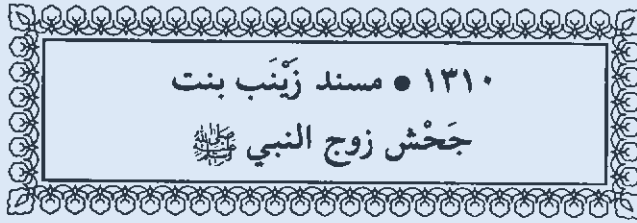 ١٣١٠ ● مسند زَيْنَب بنت
جَحْش زوج النبي ﷺ